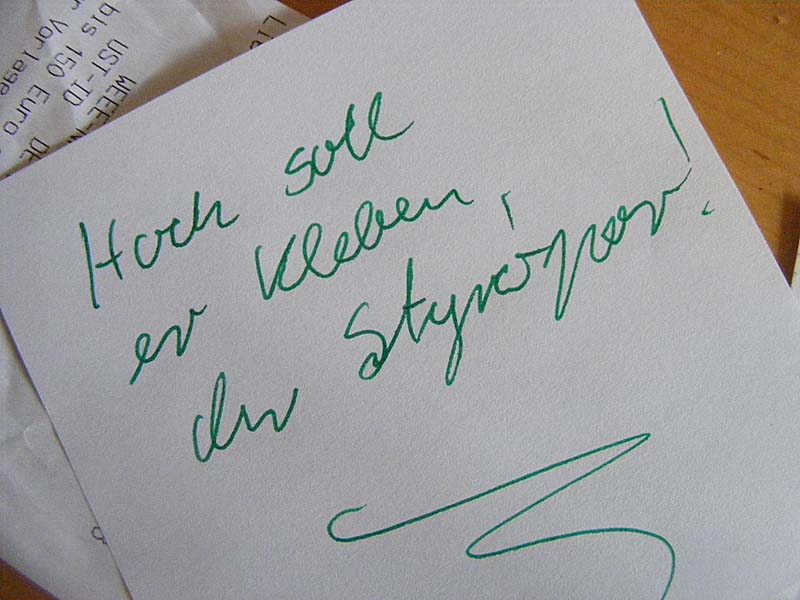 Hoch soll
er kleben,
der Styropor!
bis 150 Euro
UST-ID
WEEE-N